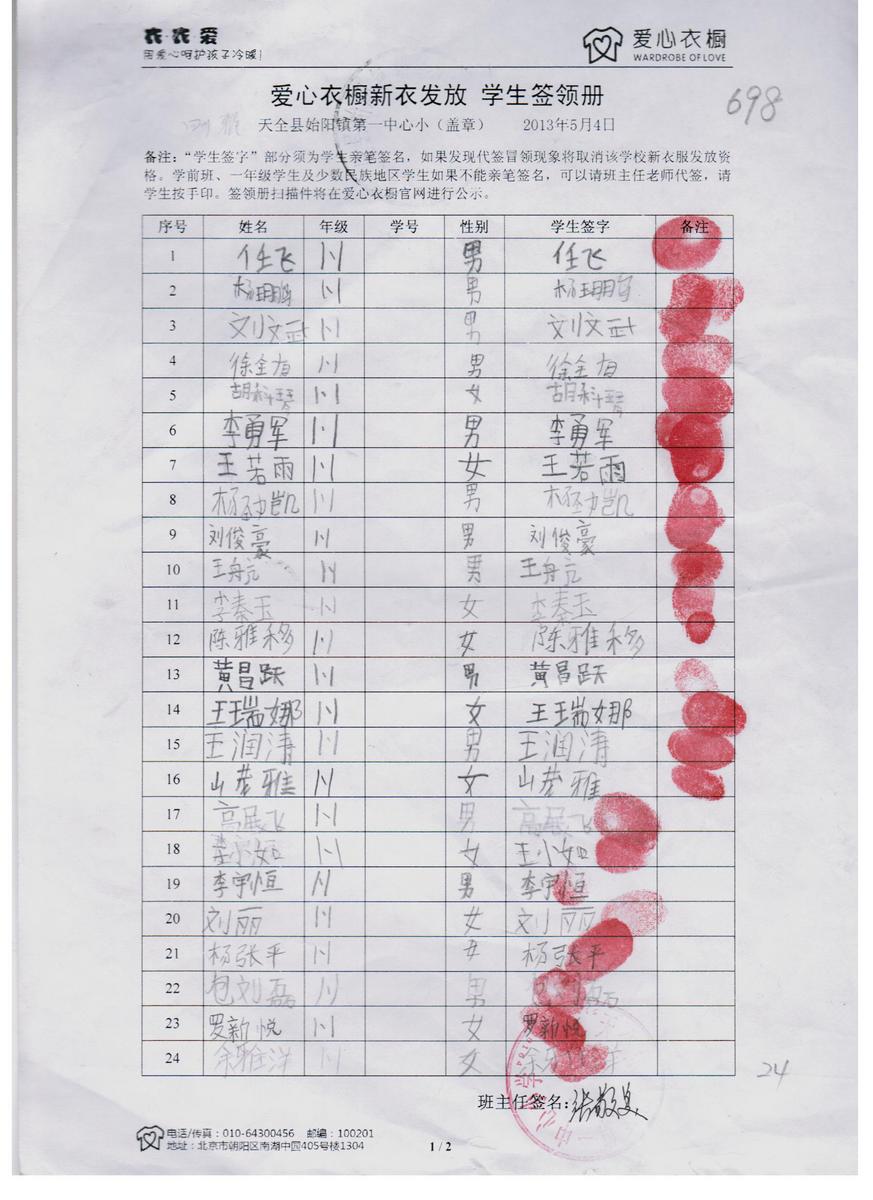 衣·衣爱
用爱心呵护孩子冷暖!
爱心衣橱
WARDROBE OF LOVE
爱心衣橱新衣发放 学生签领册
698
天全县始阳镇第一中心小（盖章） 2013年5月4日
备注：“学生签字”部分须为学生亲笔签名，如果发现代签冒领现象将取消该学校新衣服发放资
格。学前班、一年级学生及少数民族地区学生如果不能亲笔签名，可以请班主任老师代签，请
学生按手印。签领册扫描件将在爱心衣橱官网进行公示。
序号 姓名 年级 学号 性别 学生签字 备注
1 任飞 男 任飞
2 男
3 刘文武 男 刘文武
4 徐全有 男 徐全有
5 胡科琴 女 胡科琴
6 李勇军 男 李勇军
7 王若雨 女 王若雨
8 杨劲凯 男 杨劲凯
9 刘俊豪 男 刘俊豪
10 王舟 男 王舟
11 李秦玉 女 李秦玉
12 陈雅 女 陈雅
13 黄昌跃 男 黄昌跃
14 王瑞娜 女 王瑞娜
15 王润清 男 王润清
16 雅 女 雅
17 高展飞 男 高展飞
18 小如 女 王小如
19 李宇恒 男 李宇恒
20 刘丽 女 刘丽
21 杨张平 女 杨张平
22 包刘磊 男
23 罗新悦 女 罗新悦
24 余雅洋 女 余 洋
24
班主任签名:张
电话/传真：010-64300456 邮编：100201
地址：北京市朝阳区南湖中园405号楼1304
1 / 2